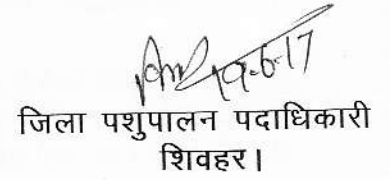 19-6-17
जिला पशुपालन पदाधिकारी
शिवहर।